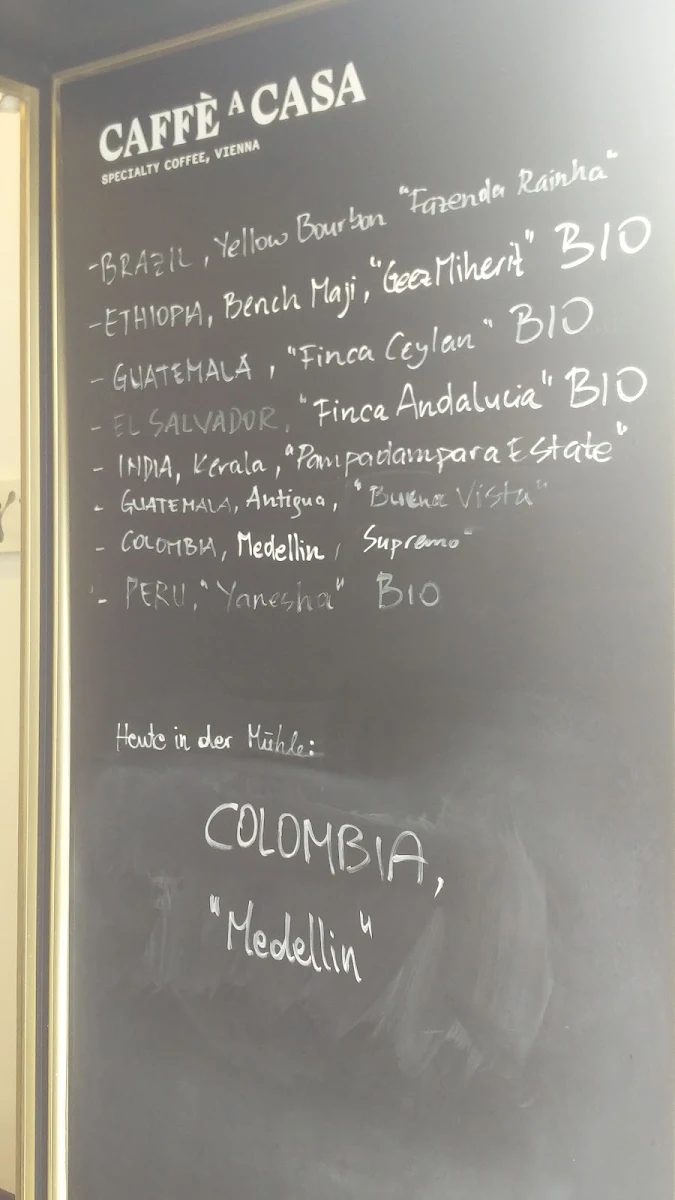 CAFFÈ A CASA
SPECIALTY COFFEE, VIENNA
- BRAZIL, Yellow Bourbon "Fazenda Rainha"
- ETHIOPIA, Bench Maji, "Geez Miherit" BIO
- GUATEMALA, "Finca Ceylan" BIO
- EL SALVADOR, "Finca Andalucia" BIO
- INDIA, Kerala, "Pampadampara Estate"
- GUATEMALA, Antigua, "Buena Vista"
- COLOMBIA, Medellin, Supremo"
- PERU, "Yanesha" BIO
Heute in der Mühle:
COLOMBIA,
"Medellin"